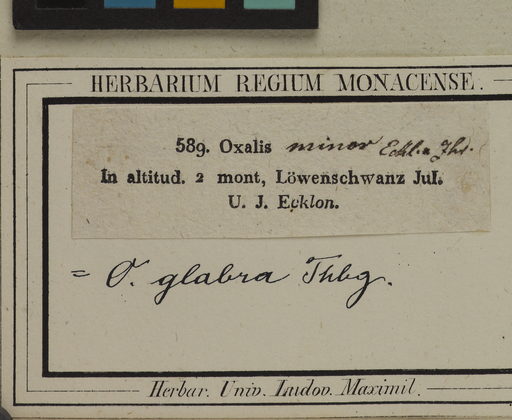 HERBARIUM REGIUM MONACENSE.
589. Oxalis minor Eckl. &
In altitud. 2 mont, Löwenschwanz Jul.
U. J. Ecklon.
= O. glabra Thbg.
Herbar. Univ. Ludov. Maximil.